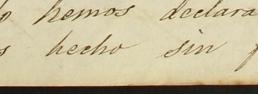 hemos declara
hecho sin